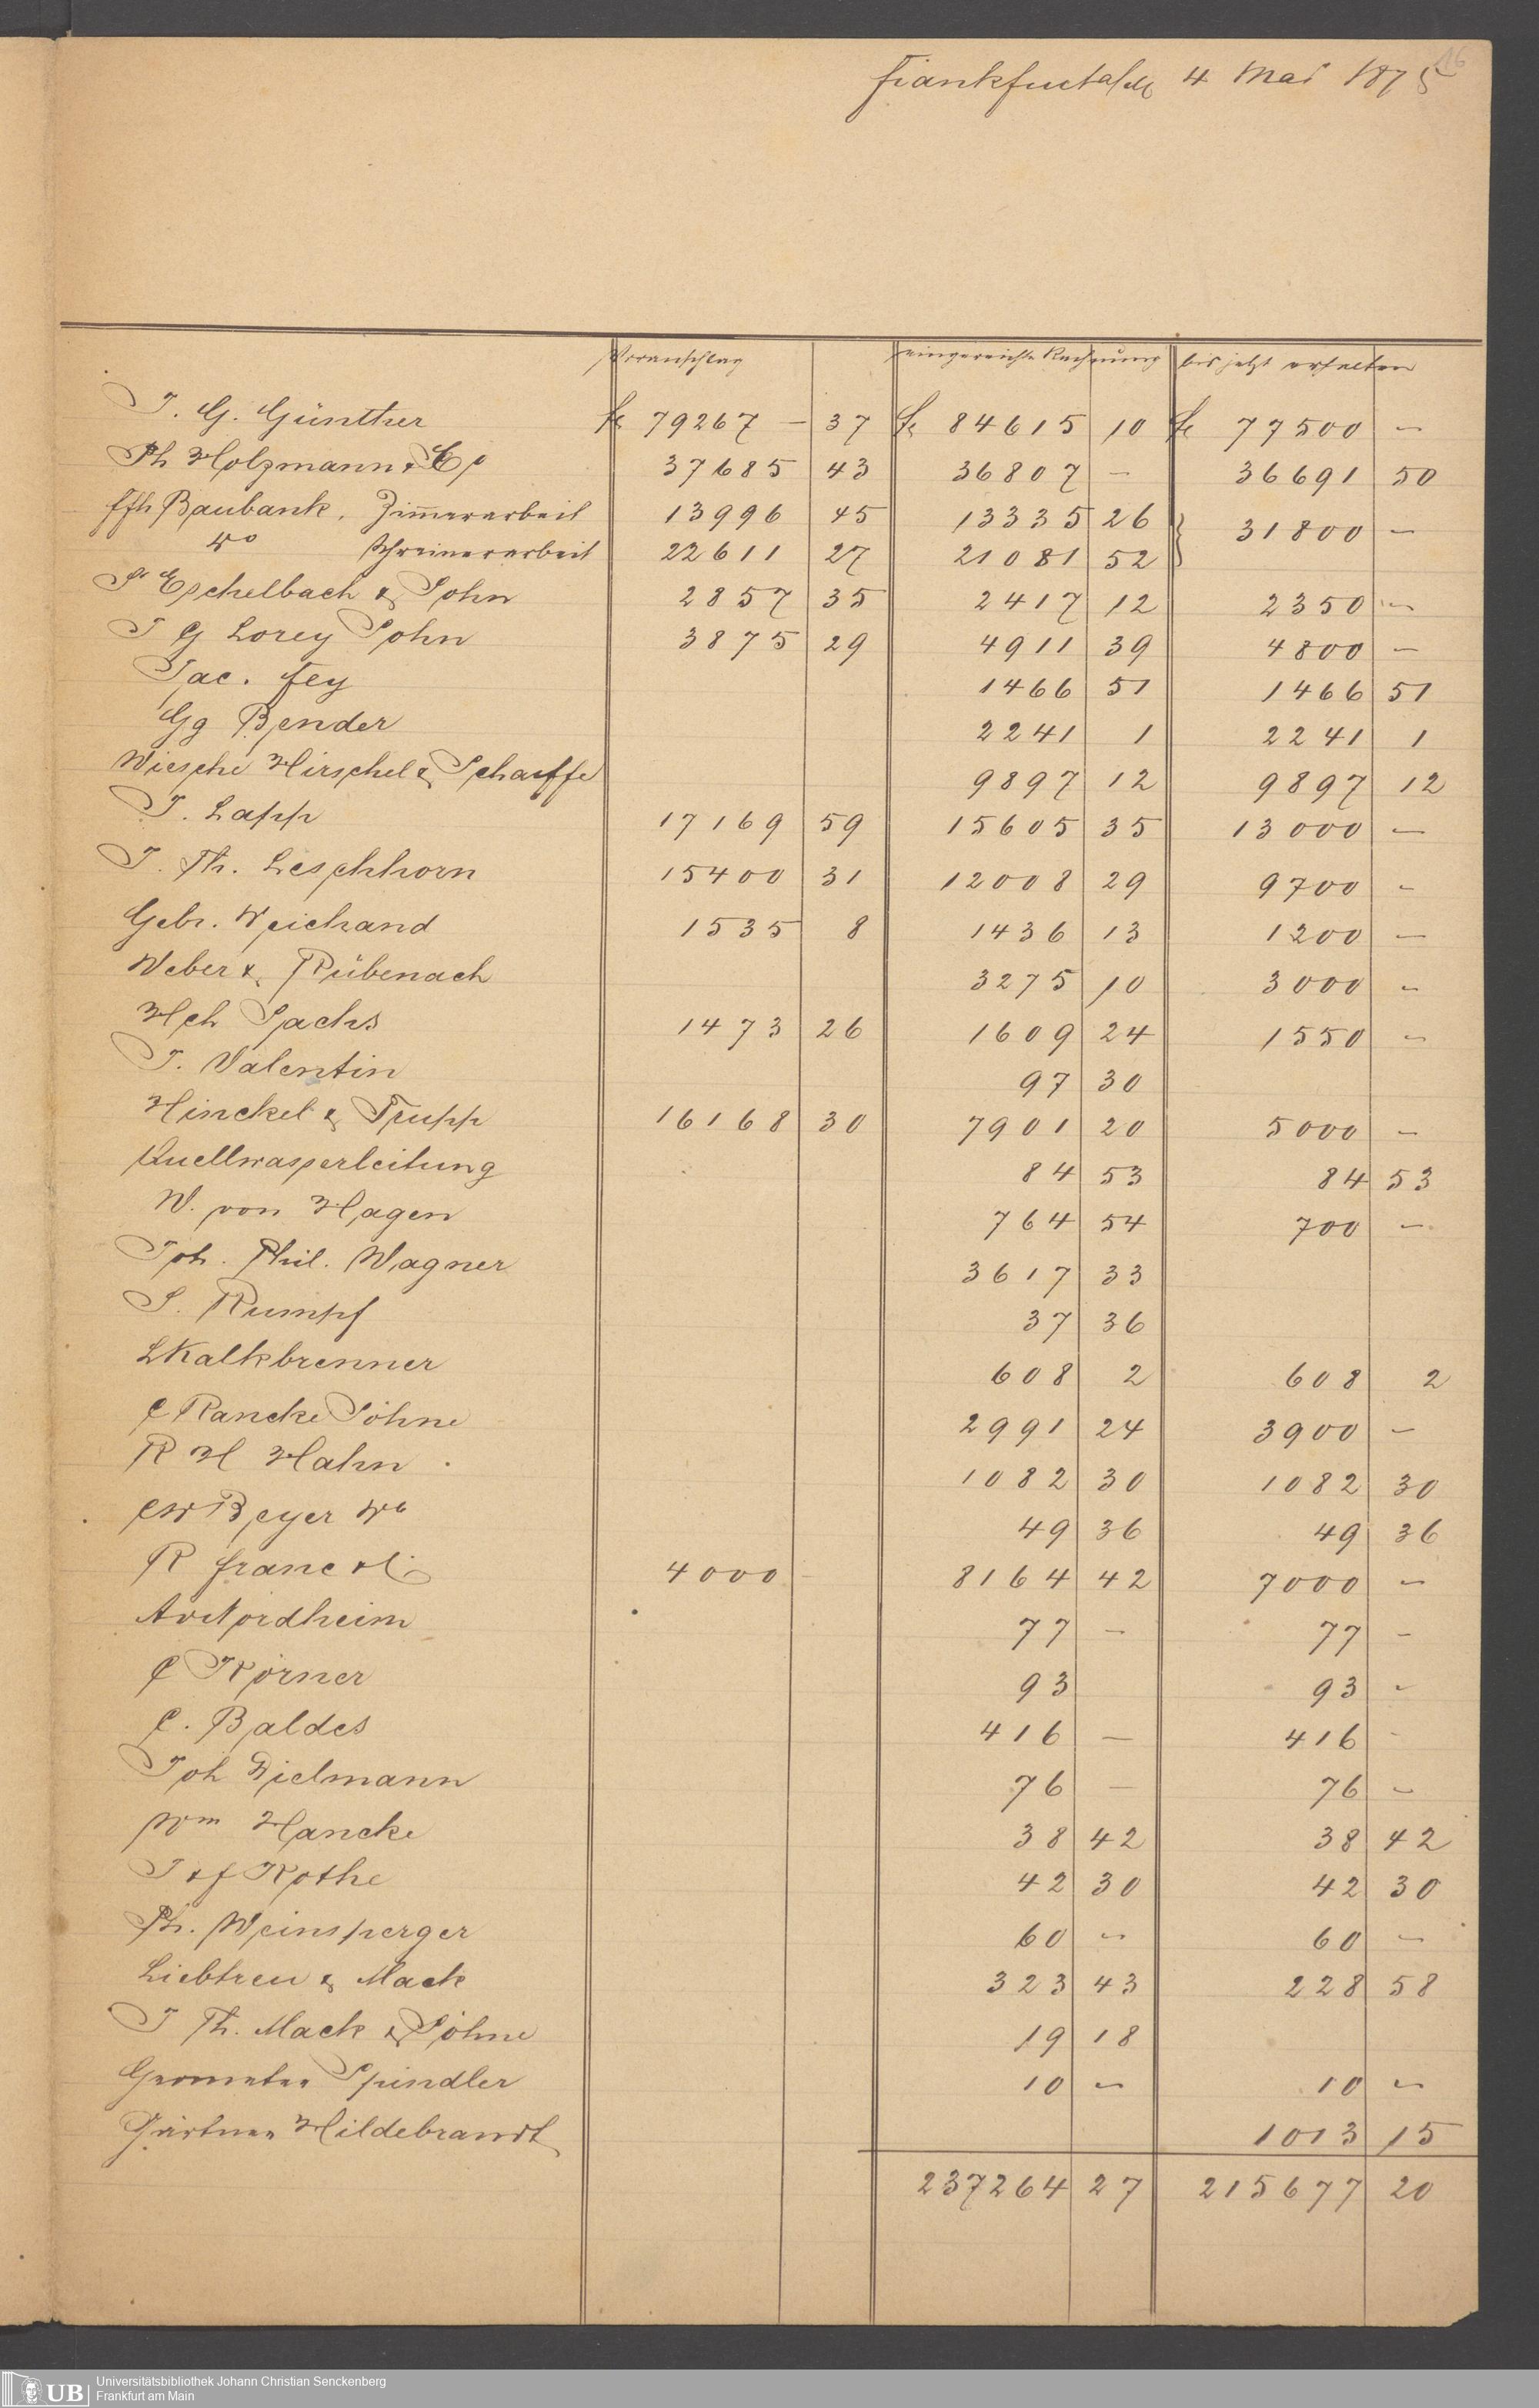 16
Frankfurt a/M 4 Mai 1875
Voranschlag eingereichte Rechnung bis jetzt erhalten
J. G. Günther fl 79267 – 37 fl 84615 10 fl 77500 –
Ph Holzmann & Co 37685 43 36807 – 36691 50
ffth Baubank, Zim̄erarbeit 13996 45 13335 26 } 31800 –
do Schreinerarbeit 22611 27 21081 52
Eschelbach & Sohn 2857 35 2417 12 2350 –
J G Lorey Sohn 3875 29 4911 39 4800 –
Jac. Fey 1466 51 1466 51
Gg Bender 2241 1 2241 1
Wiesche Hirschel & Scharffe 9897 12 9897 12
J. Lapp 17169 59 15605 35 13000 –
J. Th. Leschhorn 15400 31 12008 29 9700 –
Gebr. Weichand 1535 8 1436 13 1200 –
Weber & Rübenach 3275 10 3000 –
Hch Sachs 1473 26 1609 24 1550 –
J. Valentin 97 30
Hinckel & Trupp 16168 30 7901 20 5000 –
Quellwasserleitung 84 53 84 53
W. von Hagen 764 54 700 –
Joh. Phil. Wagner 3617 33
S. Rumpf 37 36
L Kalkbrenner 608 2 608 2
C Rancke Söhne 2991 24 3900 –
R H Hahn 1082 30 1082 30
C W Beyer We 49 36 49 36
R Franc & C. 4000 – 8164 42 7000 –
A v Nordheim 77 – 77 –
C Körner 93 93 –
C. Baldes 416 – 416 –
Joh Dielmann 76 – 76 –
Wm Hancke 38 42 38 42
J & F Kothe 42 30 42 30
Ph. Weinsperger 60 – 60 –
Liebtreu & Mack 323 43 228 58
J Th. Mack & Söhne 19 18
Geometer Spindler 10 – 10 –
Gärtner Hildebrandt 1013 15
237264 27 215677 20
UB Universitätsbibliothek Johann Christian Senckenberg
Frankfurt am Main